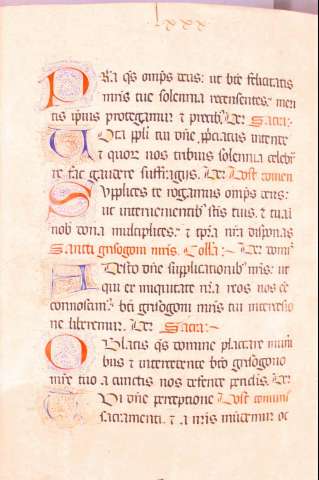 xxx
PRa qs omps deus: ut bte felicitatis
mris tue solemnia recensentes. meri
tis ipius protegamur & precib. Per. Sacra:
Uota ppli tui dne ppiciatus intende
& quor nos tribuis solemnia celebr
re fac gaudere suffragiis. Per. Post comen
Supplices te rogamus omps deus:
ut interuenientib stis tuis. & tua i
nob dona multiplices. & tpra nra disponas
Sancti grisogoni mris. Colla:- Per domi
Adesto dne supplicationib nris: ut
qui ex iniquitate nra reos nos ee
cognoscim. bti grisogoni mris tui intercessio
ne liberemur. Per. Sacra:-
Oblatis qs domine placare muni
bus & intercedente bto grisogono
mre tuo a cunctis nos defende periclis. Per
Tui dne perceptione Post comuni
sacramenti. & a nris mudemur oc